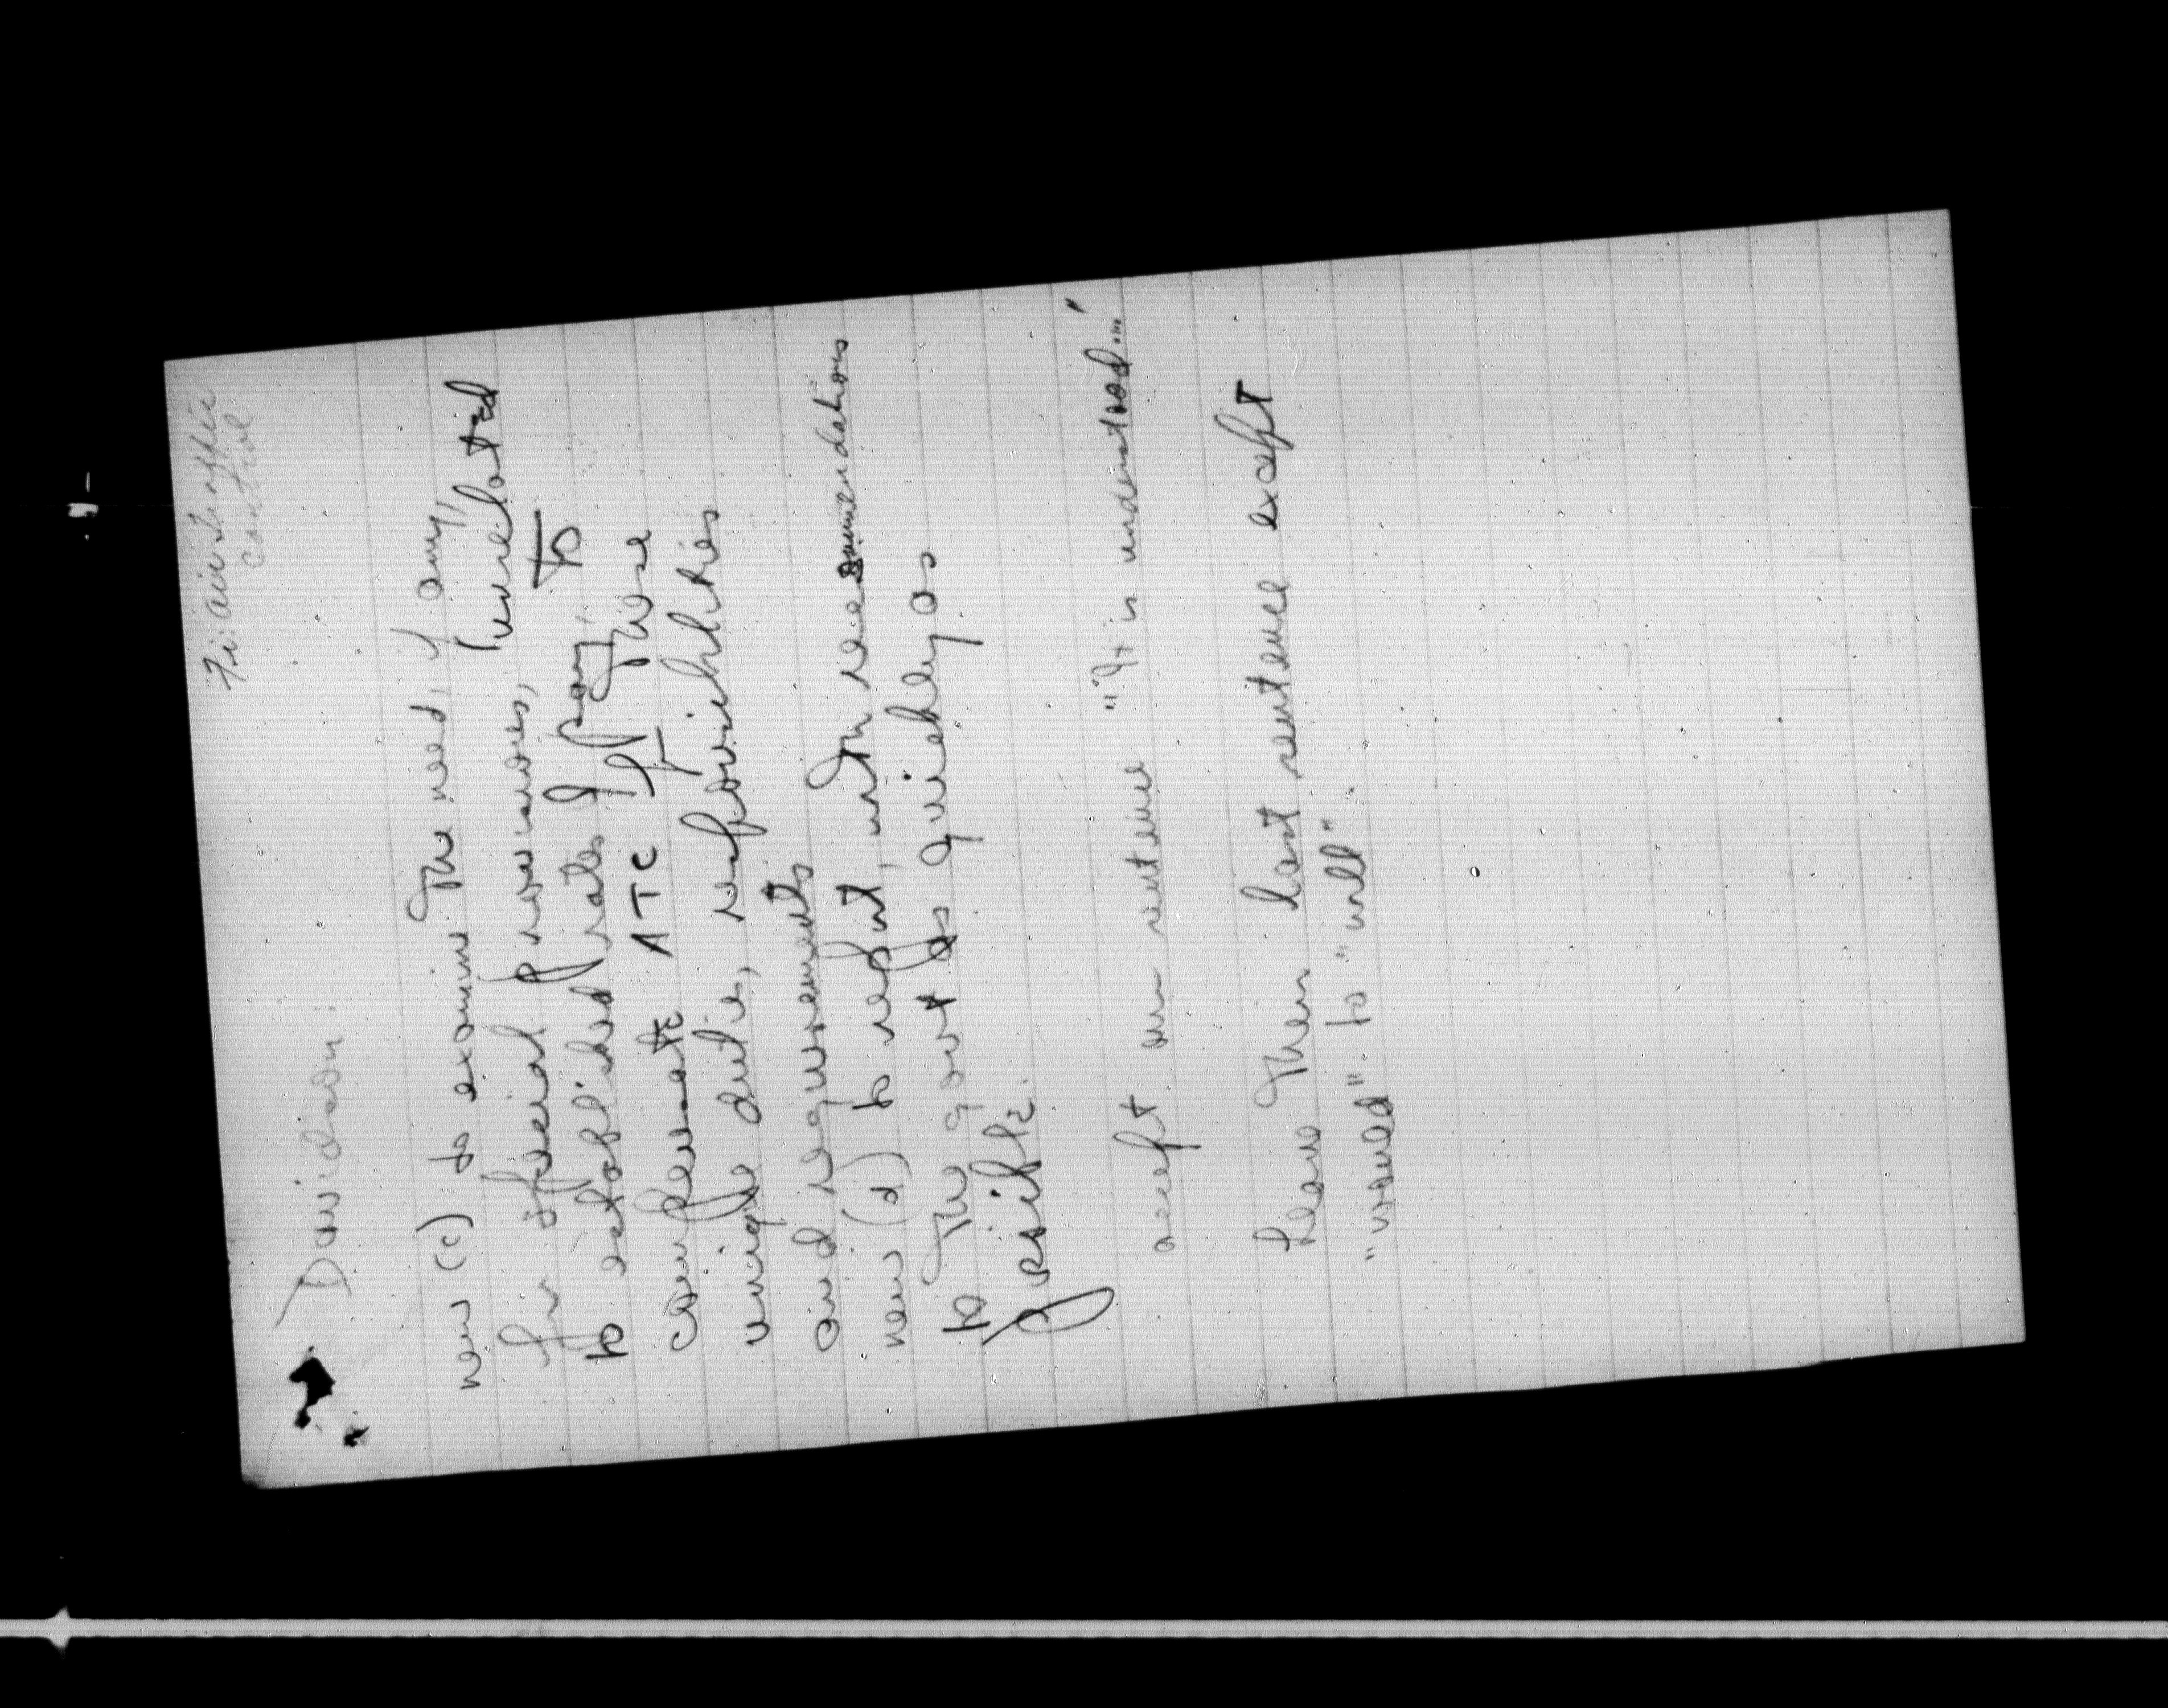 Fi: Air Traffic
Control
Davidson:
new (c) to examine the need, if any,
for special provisions, (unrelated
to established rates of pay, to
compensate ATC if for these
unique duties, responsibilities
and requirements
new (d) to report, with recommendations
to the govt as quickly as
possible.
accept our sentence "It is understood..."
leave their last sentence except
"would" to "will".